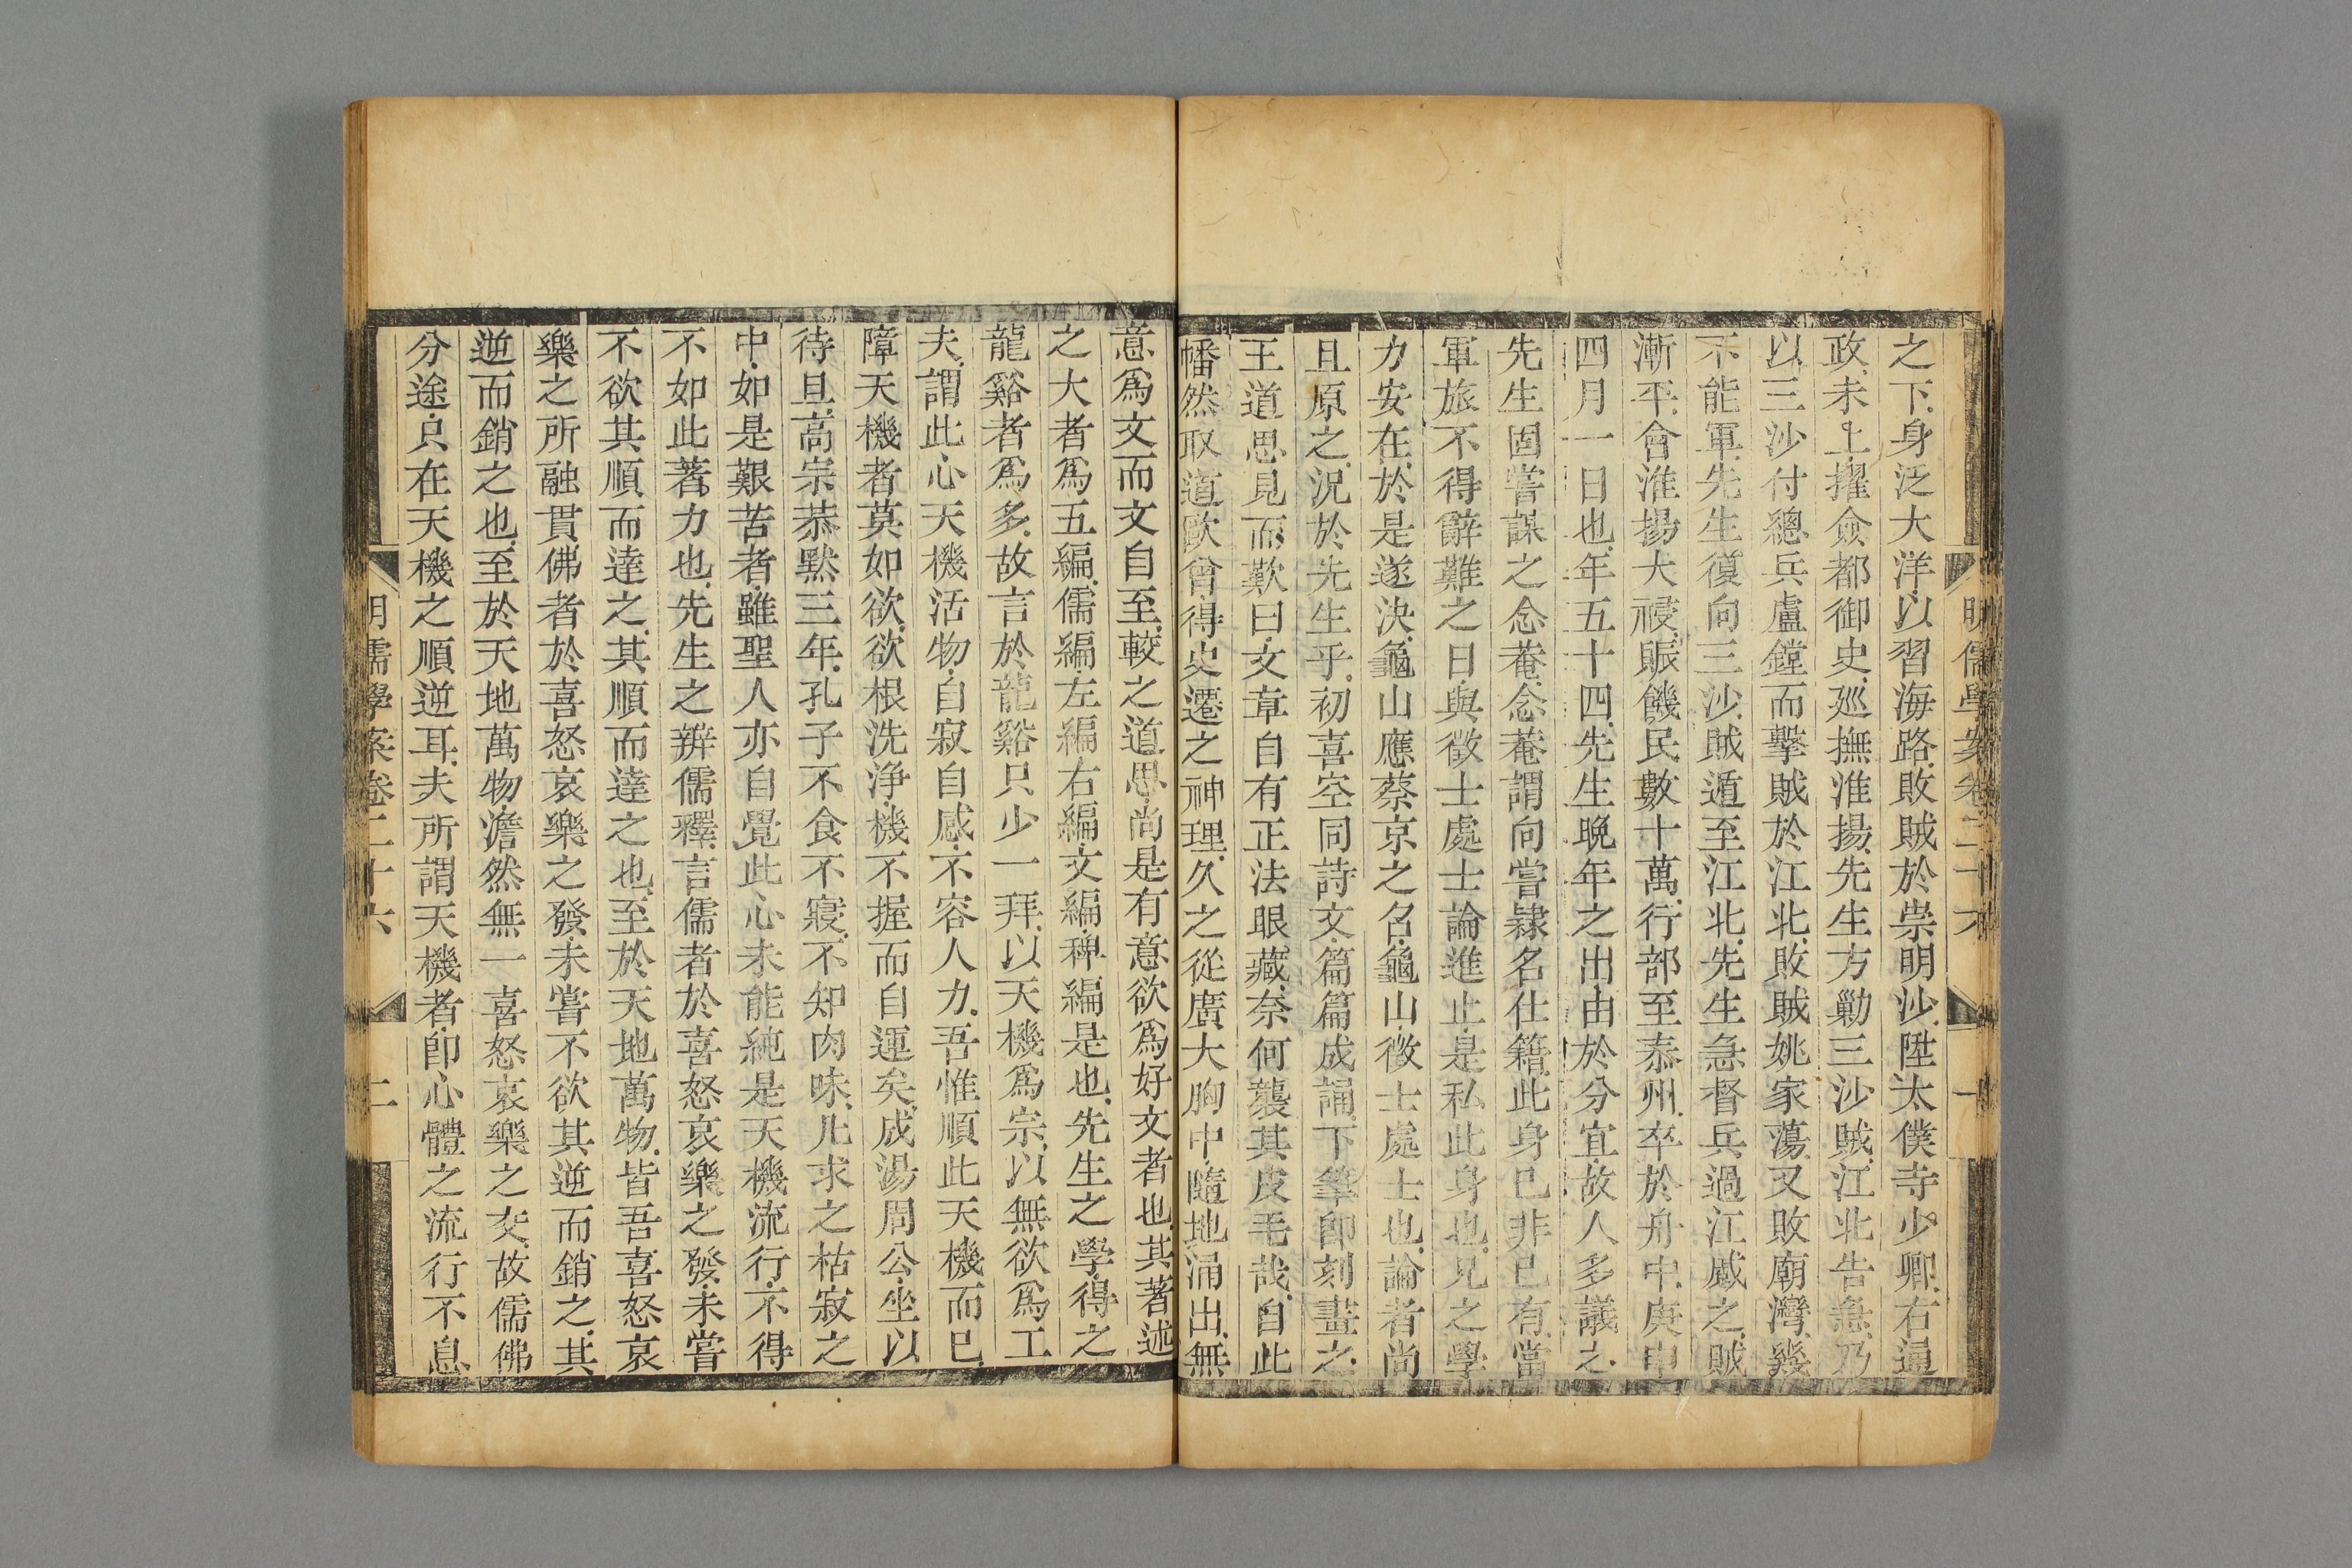 明儒學案卷二十六 一
之下身泛大洋以習海路敗賊於崇明沙陞太僕寺少卿右通
政未上擢僉都御史廵撫淮揚先生方勦三沙賊江北告急乃
以三沙付總兵盧鏜而擊賊於江北敗賊姚家蕩又敗廟灣幾
不能軍先生復向三沙賊遁至江北先生急督兵過江蹙之賊
漸平會淮揚大祲賑饑民數十萬行部至泰州卒於舟中庚申
四月一日也年五十四先生晚年之出由於分宜故人多議之
先生固嘗謀之念菴念菴謂向嘗隸名仕籍此身已非己有當
軍旅不得辭難之日與徵士處士論進止是私此身也兄之學
力安在於是遂決龜山應蔡京之召龜山徵士處士也論者尚
且原之況於先生乎初喜空同詩文篇篇成誦下筆卽刻畫之
王道思見而歎曰文章自有正法眼藏奈何襲其皮毛哉自此
幡然取道歐曾得史遷之神理久之從廣大胸中隨地涌出無
意爲文而文自至較之道思尚是有意欲爲好文者也其著述
之大者爲五編儒編左編右編文編稗編是也先生之學得之
龍谿者爲多故言於龍谿只少一拜以天機爲宗以無欲爲工
夫謂此心天機活物自寂自感不容人力吾惟順此天機而已
障天機者莫如欲欲根洗淨機不握而自運矣成湯周公坐以
待旦高宗恭默三年孔子不食不寢不知肉味凡求之枯寂之
中如是艱苦者雖聖人亦自覺此心未能純是天機流行不得
不如此著力也先生之辨儒釋言儒者於喜怒哀樂之發未嘗
不欲其順而達之其順而達之也至於天地萬物皆吾喜怒哀
樂之所融貫佛者於喜怒哀樂之發未嘗不欲其逆而銷之其
逆而銷之也至於天地萬物澹然無一喜怒哀樂之交故儒佛
分途只在天機之順逆耳夫所謂天機者卽心體之流行不息
明儒學案卷二十六 二